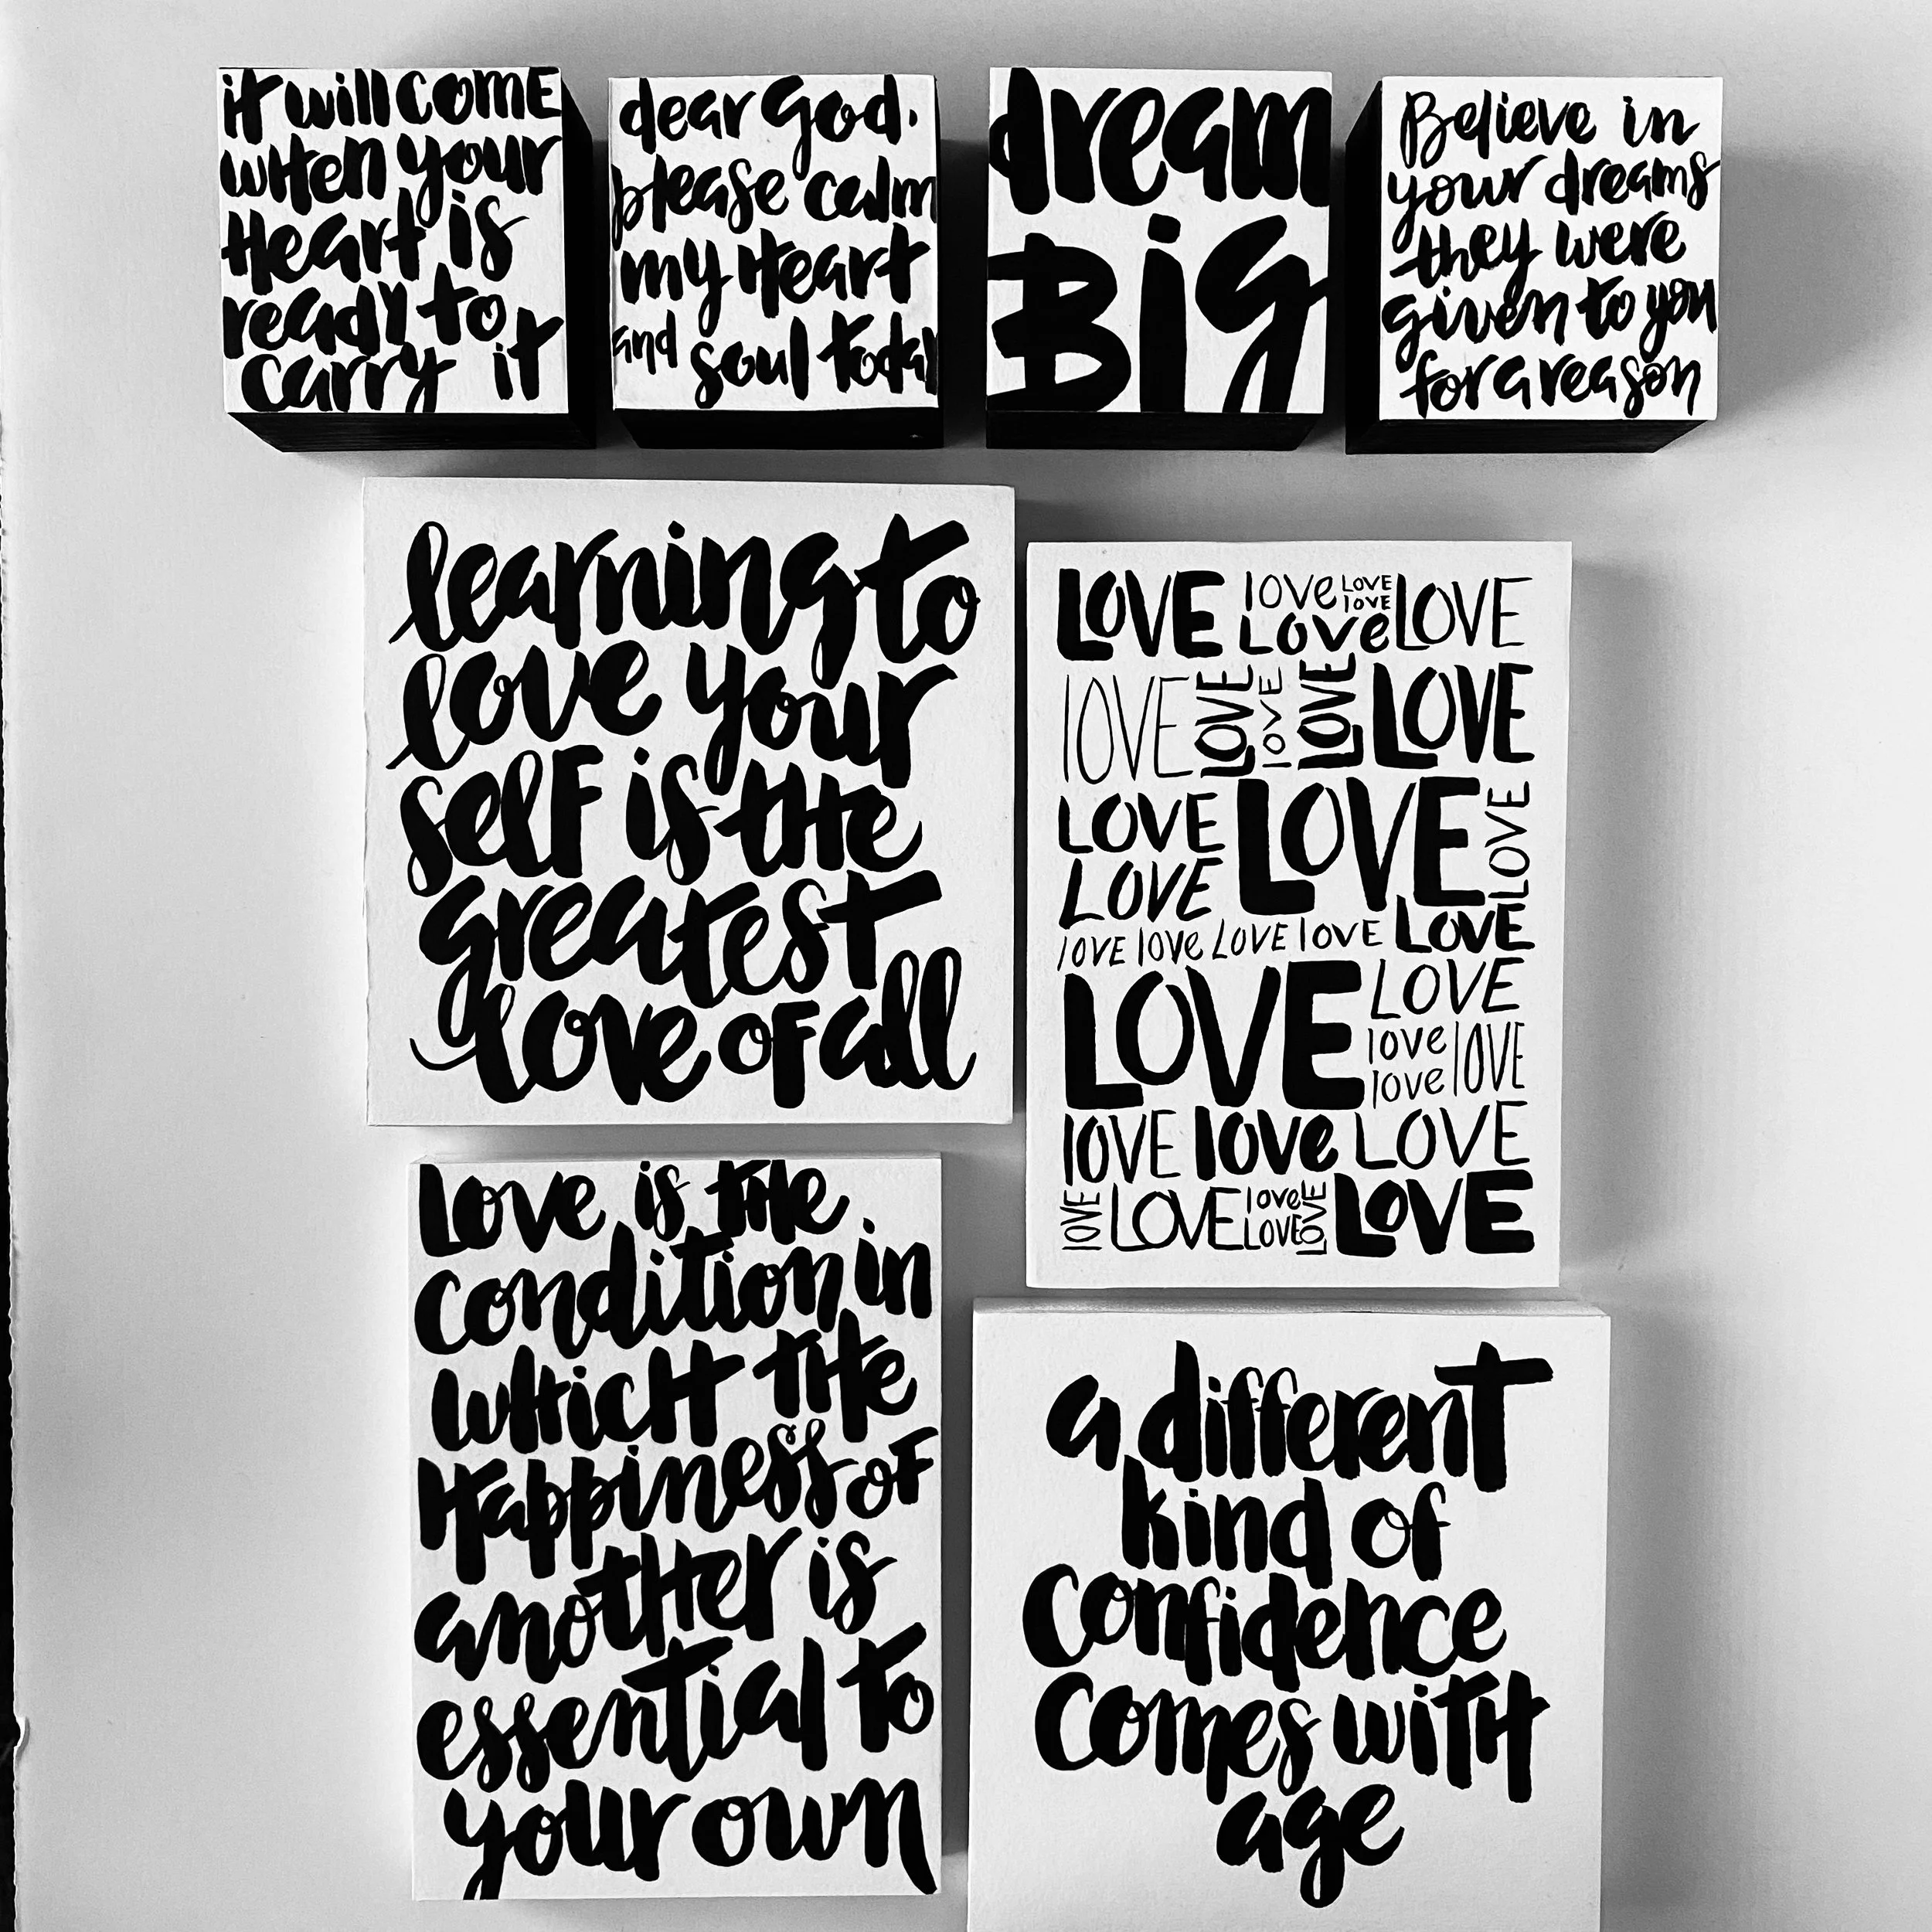 it will come
when your
Heart is
ready to
carry it
dear God.
please calm
my Heart
and soul today
dream
Big
Believe in
your dreams
they were
given to you
for a reason
learning to
love your
self is the
greatest
love of all
LOVE love LOVE LOVE
love
LOve
lOVE LOVE lOVE LOVE LOVE
LOVE LOVE LOVE
LOVE
lOVE love LOVE lOVE LOVE
LOVE LOVE
love lOVE
love
lOVE love LOVE
lOVE LOVE love LOVE LOVE
LOVE
Love is the
condition in
which the
Happiness of
another is
essential to
your own
a different
kind of
confidence
comes with
age